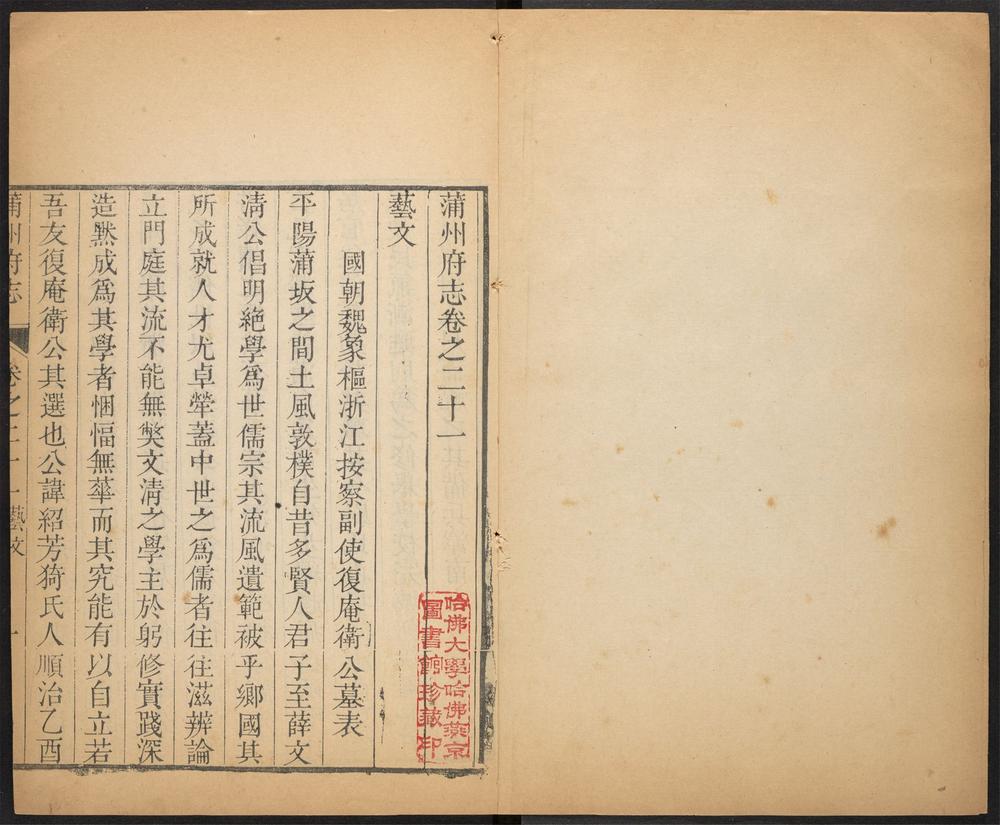 蒲州府志卷之二十一
藝文
國朝魏象樞浙江按察副使復庵衛公墓表
平陽蒲坂之間土風敦樸自昔多賢人君子至薛文
淸公倡明絶學爲世儒宗其流風遺範被乎鄉國其
所成就人才尤卓犖蓋中世之爲儒者往往滋辨論
立門庭其流不能無獘文淸之學主於躬修實踐深
造默成爲其學者悃愊無華而其究能有以自立若
吾友復庵衛公其選也公諱紹芳猗氏人順治乙酉
蒲州府志
卷之二十一
藝文
一
哈佛大學哈佛燕京
圖書館珍藏印